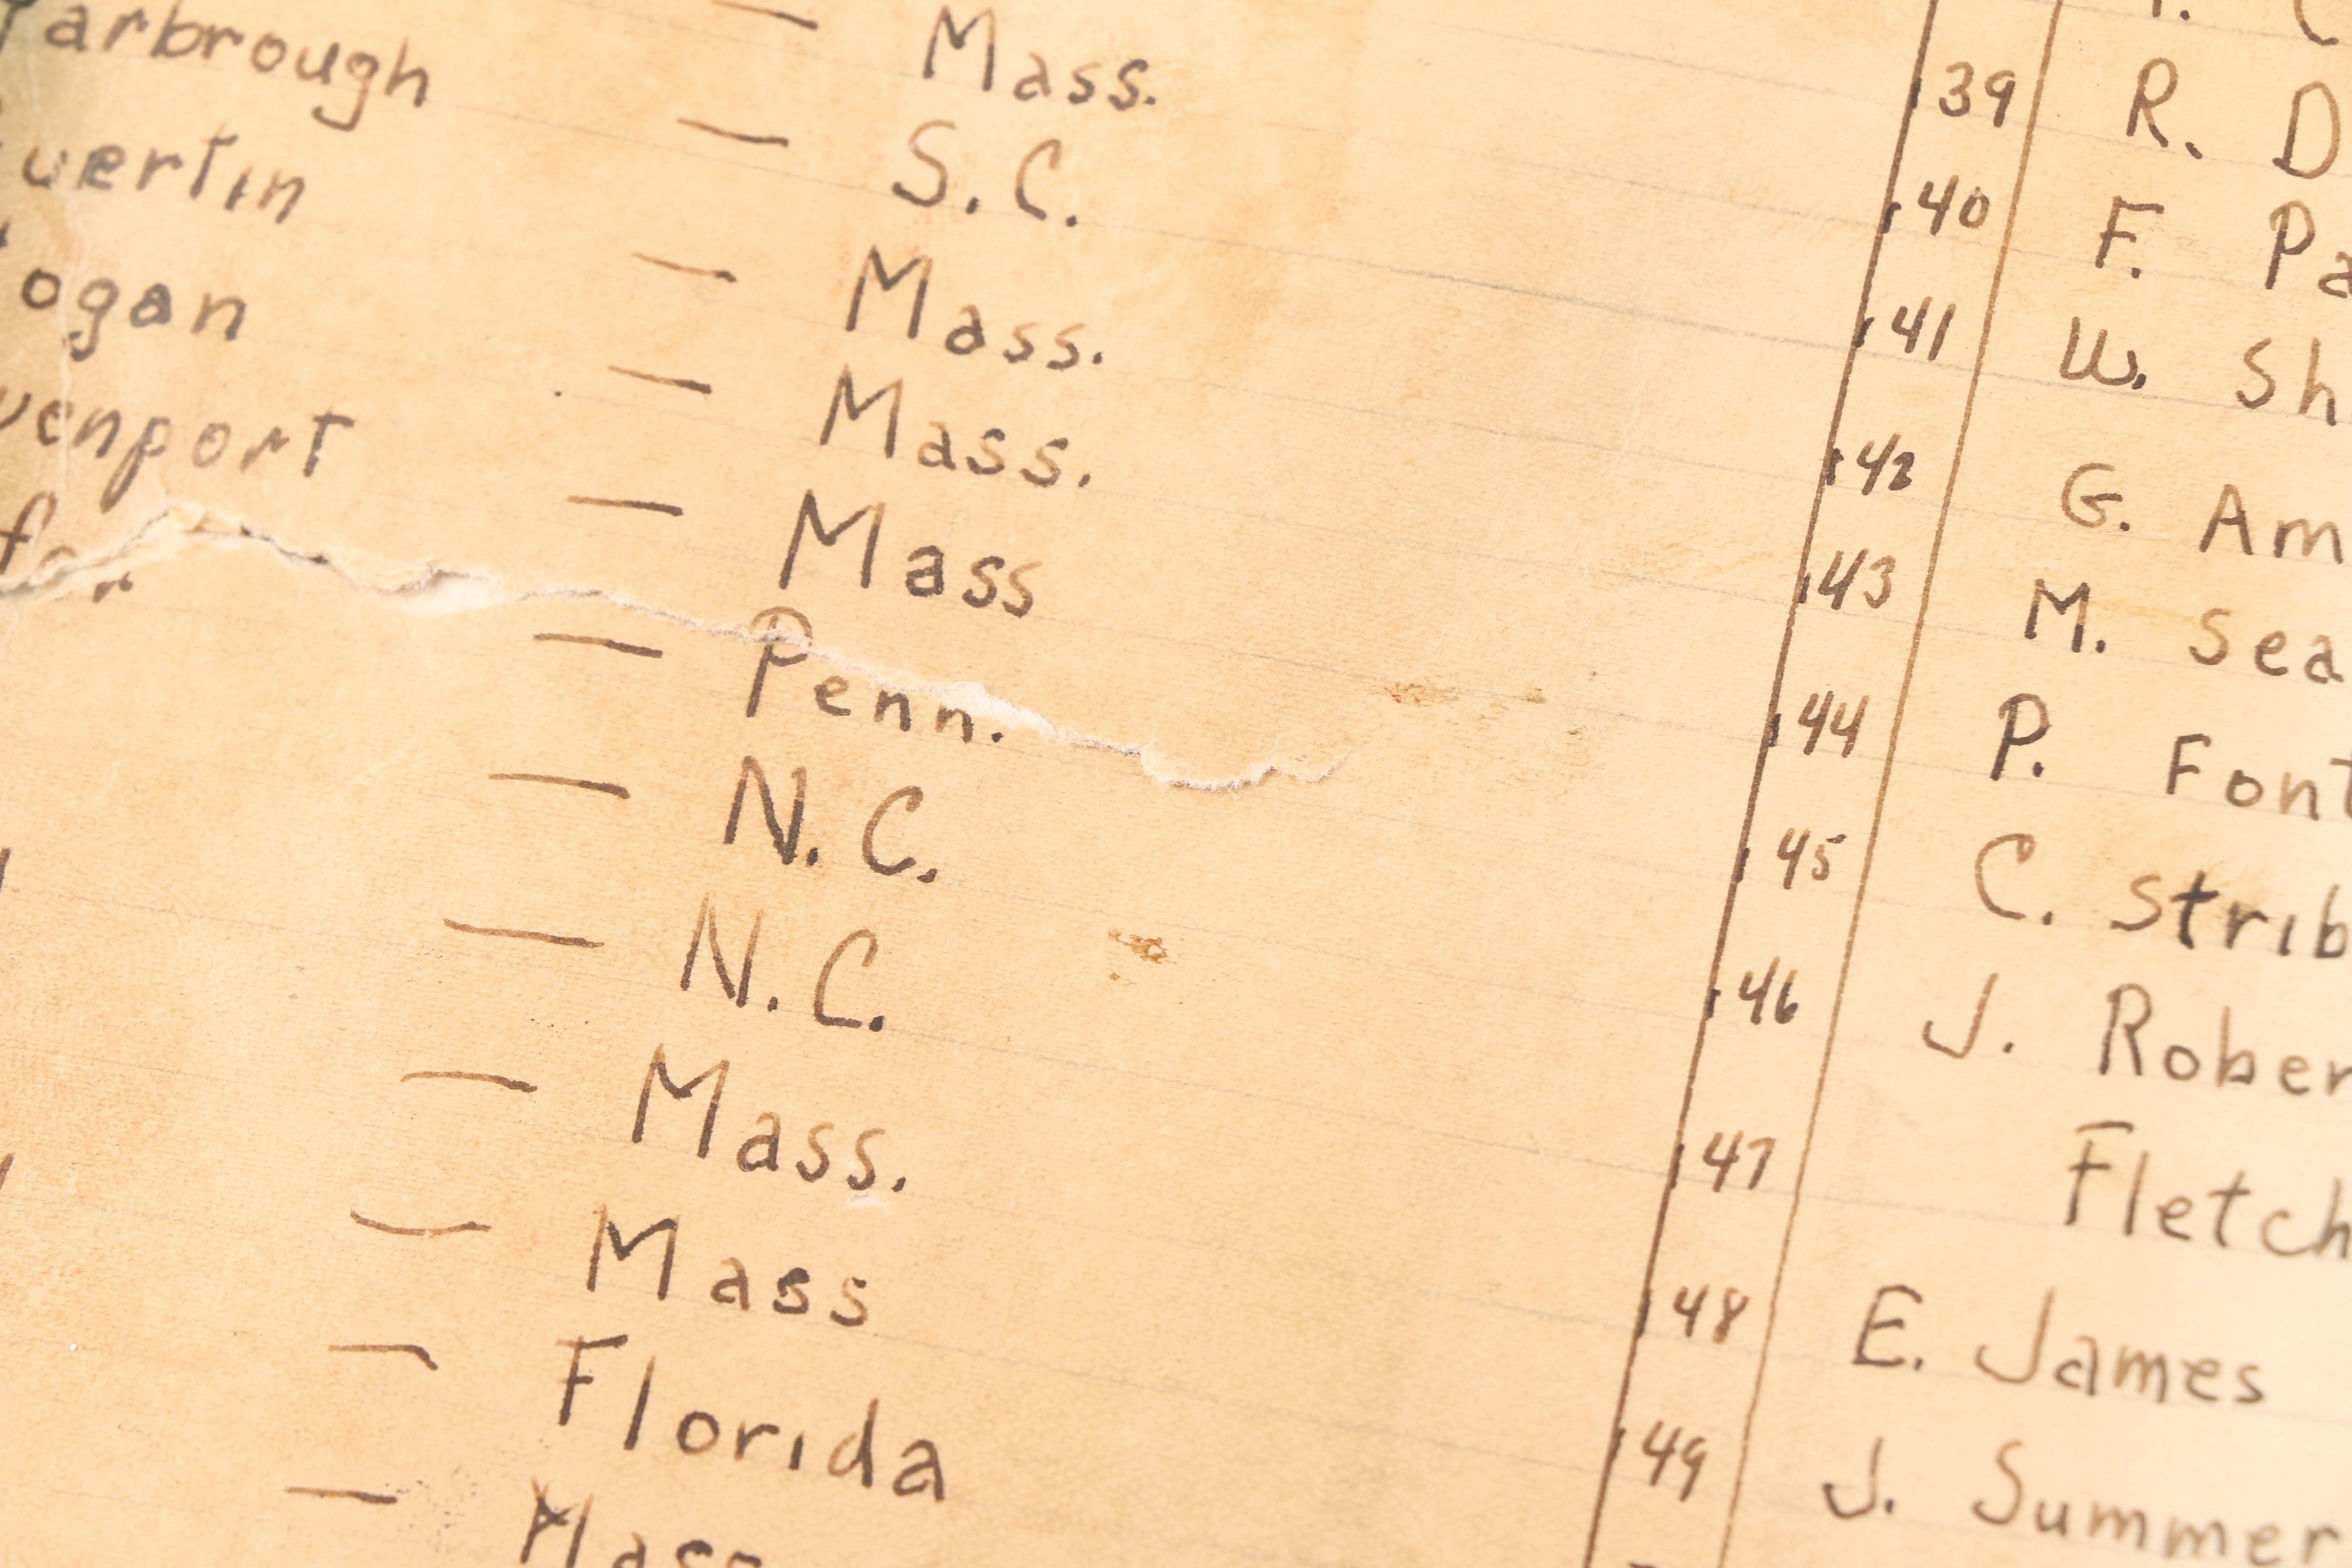 arbrough — Mass.
uertin — S.C.
ogan — Mass.
venport — Mass.
— Mass
— Penn.
— N.C.
— N.C.
— Mass.
— Mass
— Florida
— Mass
39 R. D
40 F. Pa
41 W. Sh
42 G. Am
43 M. Sea
44 P. Font
45 C. Strib
46 J. Rober
47 Fletch
48 E. James
49 J. Summer